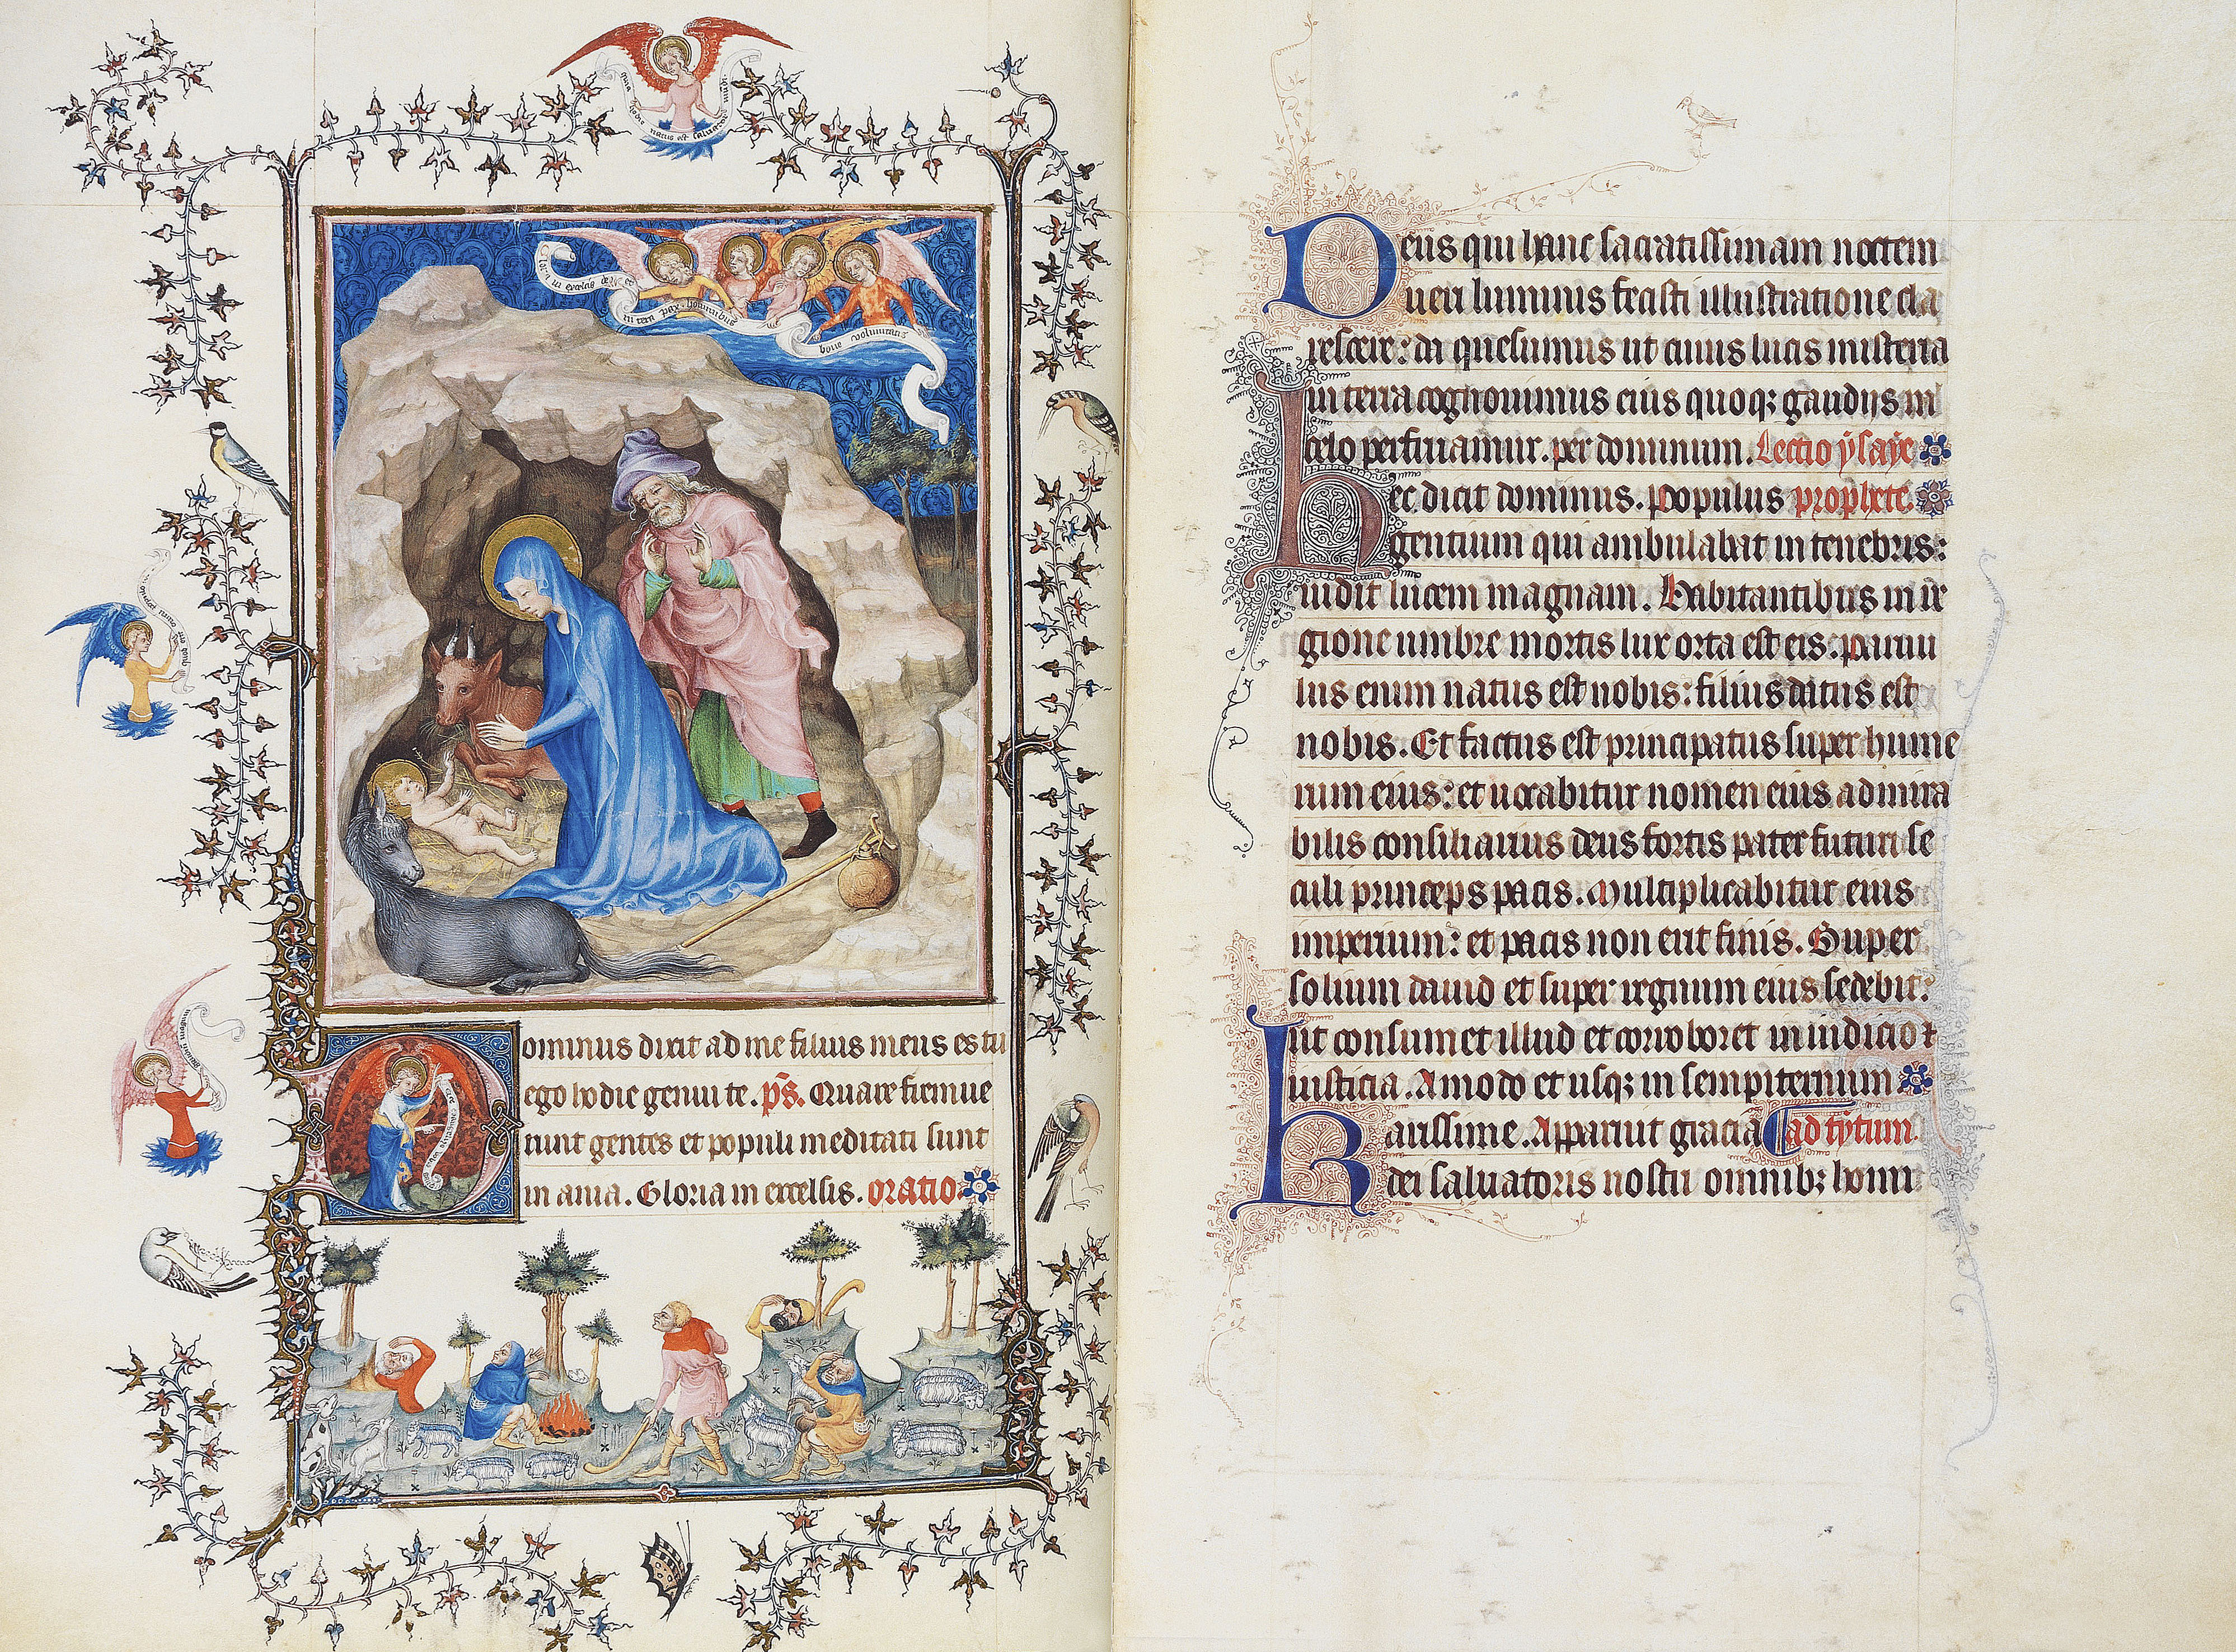 quia hodie natus est saluator mundi
Gloria in excelsis deo et
in terra pax hominibus
bone voluntatis
ominus dixit ad me filius meus es tu
ego hodie genui te. ps. Quare fremue
runt gentes et populi meditati sunt
in ania. Gloria in excelsis. oratio.
Deus qui hanc sacratissimam noctem
ueri luminis fecisti illustratione cla
rescere: da quesumus ut cuius lucis misteria
in terra cognouimus eius quoqz gaudiis in
celo perfruamur. per dominum. Lectio ysaye
Hec dicit dominus. populus prophete.
gentium qui ambulabat in tenebris:
uidit lucem magnam. Habitantibus in re
gione umbre mortis lux orta est eis. paruu
lus enim natus est nobis: filius datus est
nobis. Et factus est principatus super hume
rum eius: et uocabitur nomen eius admira
bilis consiliarius deus fortis pater futuri se
culi princeps pacis. Multiplicabitur eius
imperium: et pacis non erit finis. Super
solium dauid et super regnum eius sedebit:
Ut confirmet illud et corroboret in iudicio ⁊
iusticia. Amodo et usqz in sempiternum
Karissime. Apparuit gracia ad tytum.
dei saluatoris nostri omnibz homi